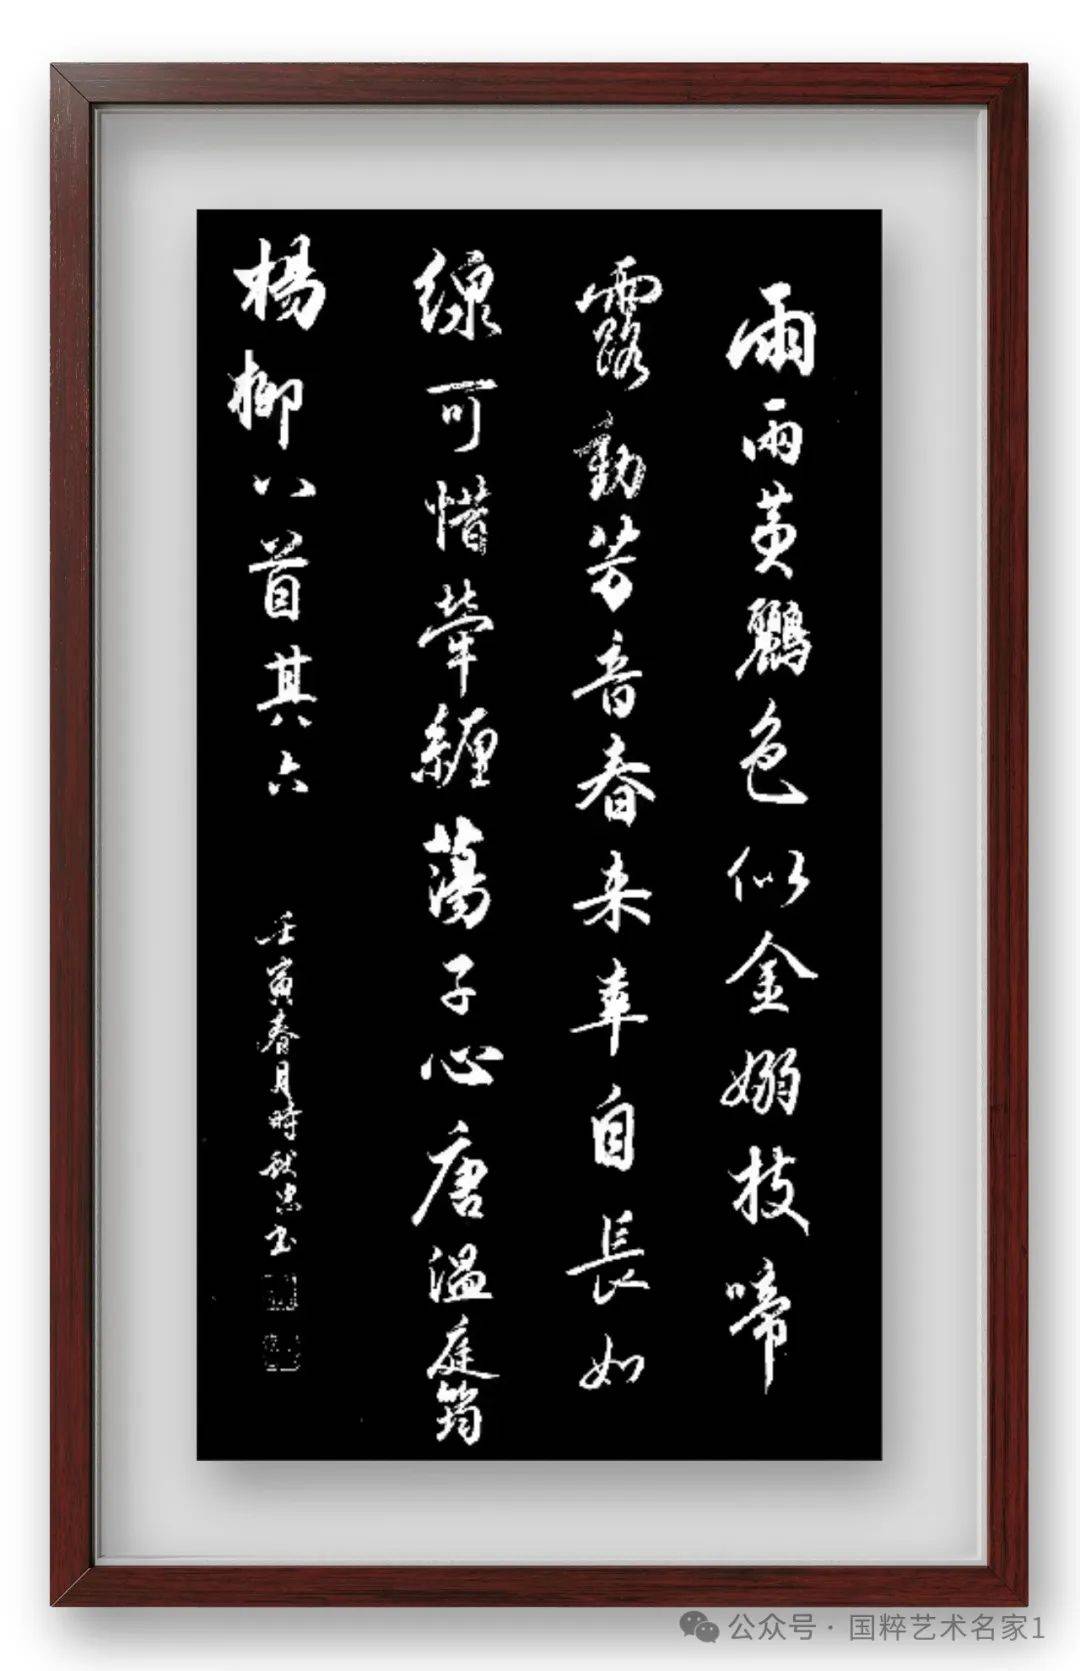 兩兩黃鸝色似金嫋枝啼
露動芳音春来幸自長如
線可惜牽纏蕩子心唐温庭筠
楊柳八首其六
壬寅春月時忠书
公众号 · 国粹艺术名家1